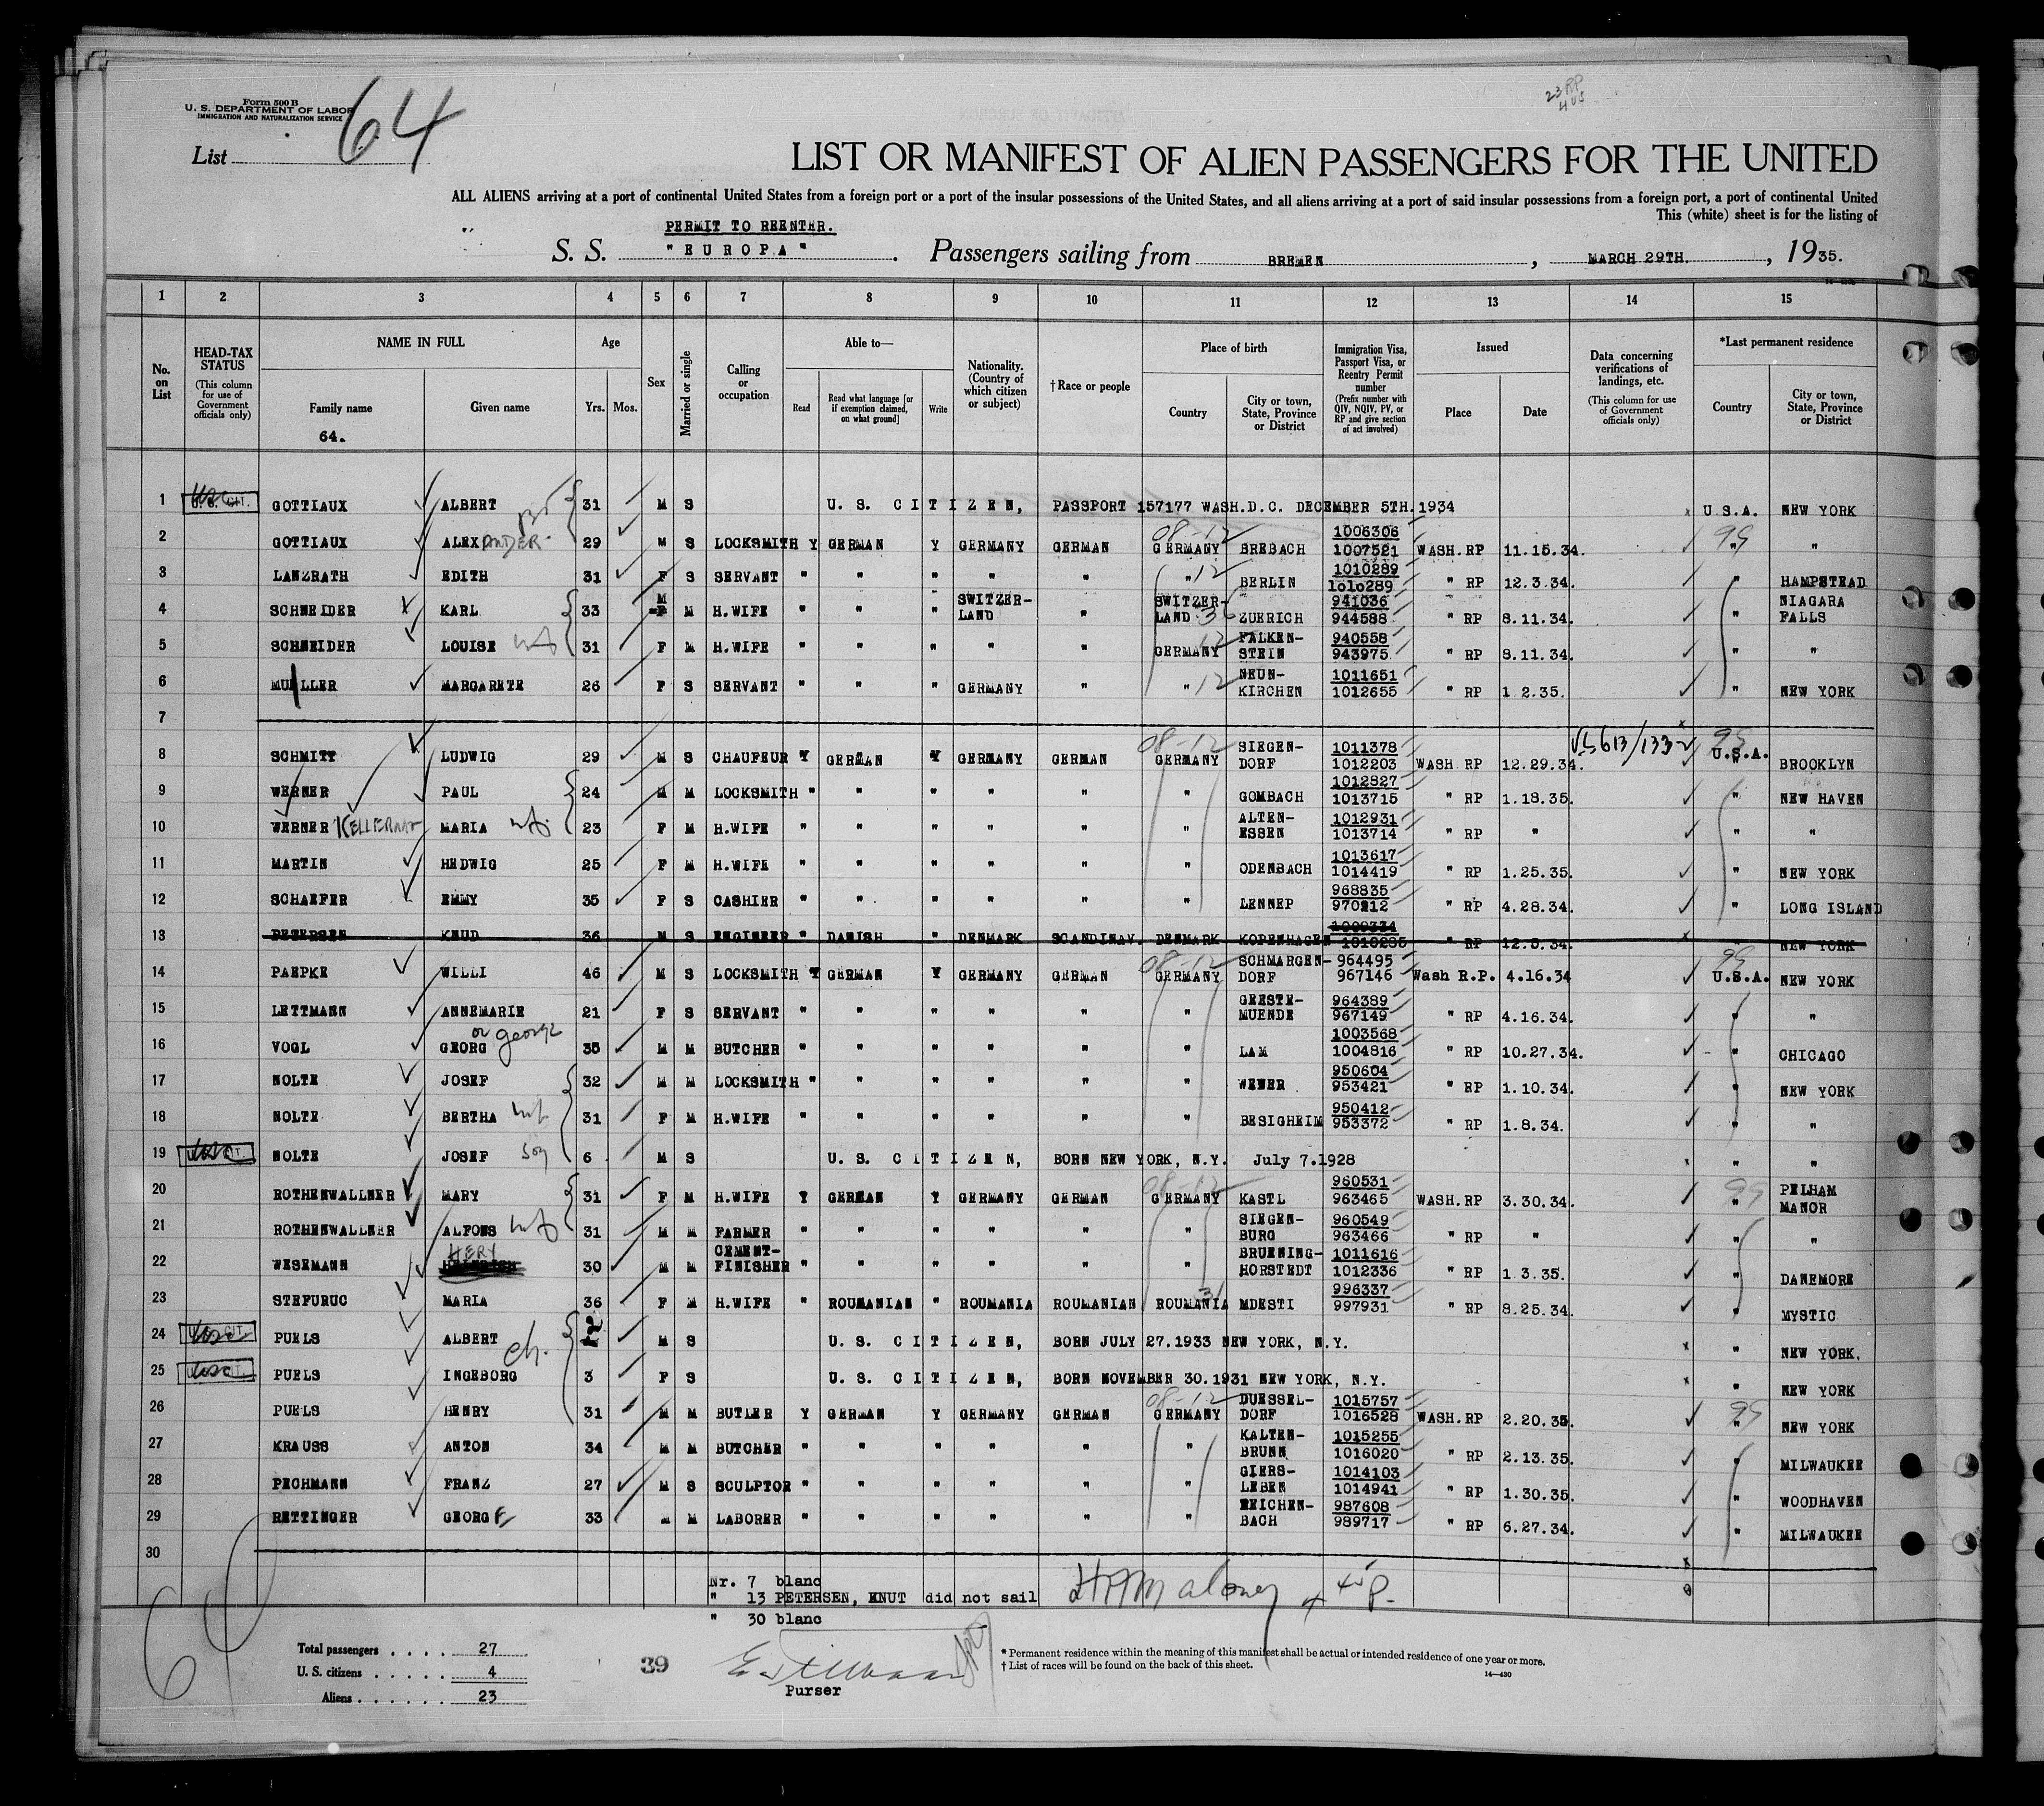 Form 500 B
U. S. DEPARTMENT OF LABOR
IMMIGRATION AND NATURALIZATION SERVICE
64
23 RP
4 US
List
LIST OR MANIFEST OF ALIEN PASSENGERS FOR THE UNITED
ALL ALIENS arriving at a port of continental United States from a foreign port or a port of the insular possessions of the United States, and all aliens arriving at a port of said insular possessions from a foreign port, a port of continental United
This (white) sheet is for the listing of
PERMIT TO REENTER.
S. S. "EUROPA". Passengers sailing from BREMEN, MARCH 29TH., 1935.
1 2 3 4 5 6 7 8 9 10 11 12 13 14 15
No. on List
HEAD-TAX STATUS (This column for use of Government officials only)
NAME IN FULL
Family name Given name
64.
Age
Yrs. Mos.
Sex
Married or single
Calling or occupation
Able to—
Read Read what language [or if exemption claimed, on what ground] Write
Nationality. (Country of which citizen or subject)
†Race or people
Place of birth
Country City or town, State, Province or District
Immigration Visa, Passport Visa, or Reentry Permit number (Prefix number with QIV, NQIV, PV, or RP and give section of act involved)
Issued
Place Date
Data concerning verifications of landings, etc. (This column for use of Government officials only)
*Last permanent residence
Country City or town, State, Province or District
1 GOTTIAUX ALBERT 31 M S U. S. CITIZEN, PASSPORT 157177 WASH.D.C. DECEMBER 5TH.1934 U.S.A. NEW YORK
2 GOTTIAUX ALEXANDER 29 M S LOCKSMITH Y GERMAN Y GERMANY GERMAN GERMANY 08-12 BREBACH 1006306 1007521 WASH.RP 11.15.34. 99 " "
3 LANZRATH EDITH 31 F S SERVANT " " " " " " 12 BERLIN 1010289 1o1o289 " RP 12.3.34. " HAMPSTEAD
4 SCHNEIDER KARL 33 M M H.WIFE " " " SWITZER-LAND " SWITZER-LAND ZUERICH 941036 944588 " RP 8.11.34. " NIAGARA FALLS
5 SCHNEIDER LOUISE wf 31 F M H.WIFE " " " " " GERMANY 12 FALKEN-STEIN 940558 943975 " RP 8.11.34. " "
6 MUELLER MARGARETE 26 F S SERVANT " " " GERMANY " " 12 NEUN-KIRCHEN 1011651 1012655 " RP 1 2.35. " NEW YORK
7
8 SCHMITT LUDWIG 29 M S CHAUFEUR Y GERMAN Y GERMANY GERMAN 08-12 GERMANY SIEGEN-DORF 1011378 1012203 WASH RP 12.29.34. 99 U.S.A. BROOKLYN
9 WERNER PAUL 24 M M LOCKSMITH " " " " " " GOMBACH 1012827 1013715 " RP 1.18.35. " NEW HAVEN
10 WERNER MARIA wf. 23 F M H.WIFE " " " " " " ALTEN-ESSEN 1012931 1013714 " RP " " "
11 MARTIN HEDWIG 25 F M H.WIFE " " " " " " ODENBACH 1013617 1014419 " RP 1.25.35. " NEW YORK
12 SCHAEFER EMMY 35 F S CASHIER " " " " " " LENNEP 968835 970212 " RP 4.28.34. " LONG ISLAND
13 PETERSEN KNUD 36 M S ENGINEER " DANISH " DENMARK SCANDINAV. DENMARK KOPENHAGEN 1009334 1010285 " RP 12.5.34. NEW YORK
14 PAEPKE WILLI 46 M S LOCKSMITH Y GERMAN Y GERMANY GERMAN 08-12 GERMANY SCHMARGEN-DORF 964495 967146 Wash R.P. 4.16.34 99 U.S.A. NEW YORK
15 LETTMANN ANNEMARIE 21 F S SERVANT " " " " " " GEESTE-MUENDE 964389 967149 " RP 4.16.34. " "
16 VOGL GEORG or George 35 M M BUTCHER " " " " " " LAM 1003568 1004816 " RP 10.27.34. " CHICAGO
17 NOLTE JOSEF 32 M M LOCKSMITH " " " " " " WEWER 950604 953421 " RP 1.10.34. " NEW YORK
18 NOLTE BERTHA wf 31 F M H.WIFE " " " " " " BESIGHEIM 950412 953372 " RP 1.8.34. " "
19 NOLTE JOSEF son 6 M S U. S. CITIZEN, BORN NEW YORK, N.Y. July 7.1928 " "
20 ROTHENWALLNER MARY 31 F M H.WIFE Y GERMAN Y GERMANY GERMAN 08-12 GERMANY KASTL 960531 963465 WASH.RP 3.30.34. 99 " PELHAM MANOR
21 ROTHENWALLNER ALFONS wf 31 M M FARMER " " " " " " SIEGEN-BURG 960549 963466 " RP " " "
22 WESEMANN HERY 30 M M CEMENT-FINISHER " " " " " " BRUENING-HORSTEDT 1011616 1012336 " RP 1 3.35. " DANEMORE
23 STEFURUC MARIA 36 F M H.WIFE " ROUMANIAN " ROUMANIA ROUMANIAN ROUMANIA 31 MDESTI 996337 997931 " RP 8.25.34. " MYSTIC
24 PUELS ALBERT 2 M S U. S. CITIZEN, BORN JULY 27.1933 NEW YORK, N.Y. " NEW YORK.
ch.
25 PUELS INGEBORG 3 F S U. S. CITIZEN, BORN NOVEMBER 30.1931 NEW YORK, N.Y. " NEW YORK
26 PUELS HENRY 31 M M BUTLER Y GERMAN Y GERMANY GERMAN 08-12 GERMANY DUESSEL-DORF 1015757 1016528 WASH.RP 2.20.35. 99 " NEW YORK
27 KRAUSS ANTON 34 M M BUTCHER " " " " " " KALTEN-BRUNN 1015255 1016020 " RP 2.13.35. " MILWAUKEE
28 PECHMANN FRANZ 27 M S SCULPTOR " " " " " " GIERS-LEBEN 1014103 1014941 " RP 1.30.35. " WOODHAVEN
29 RETTINGER GEORGE 33 M M LABORER " " " " " " REICHEN-BACH 987608 989717 " RP 6.27.34. " MILWAUKEE
30
Nr. 7 blanc
" 13 PETERSEN, KNUT did not sail
" 30 blanc
64
Total passengers . . . . 27
U. S. citizens . . . . . 4
Aliens . . . . . . 23
39
Purser
* Permanent residence within the meaning of this manifest shall be actual or intended residence of one year or more.
† List of races will be found on the back of this sheet.
14—430